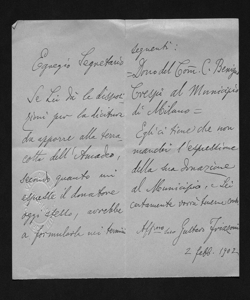 Egregio Segretario
Se Lei dà le disposi
zioni per la dicitura
da apporre alla terra
cotta dell'Amadeo,
secondo quanto mi
espresse il donatore
oggi stesso, avrebbe
a formularla nei termini
seguenti:
"Dono del Comm. C. Benigno
Crespi al Municipio
di Milano"
Egli ci tiene che non
manchi l'espressione
della sua donazione
al Municipio, e Lei
certamente vorrà tenerne conto
Affmo suo Gustavo
2 febb. 1902